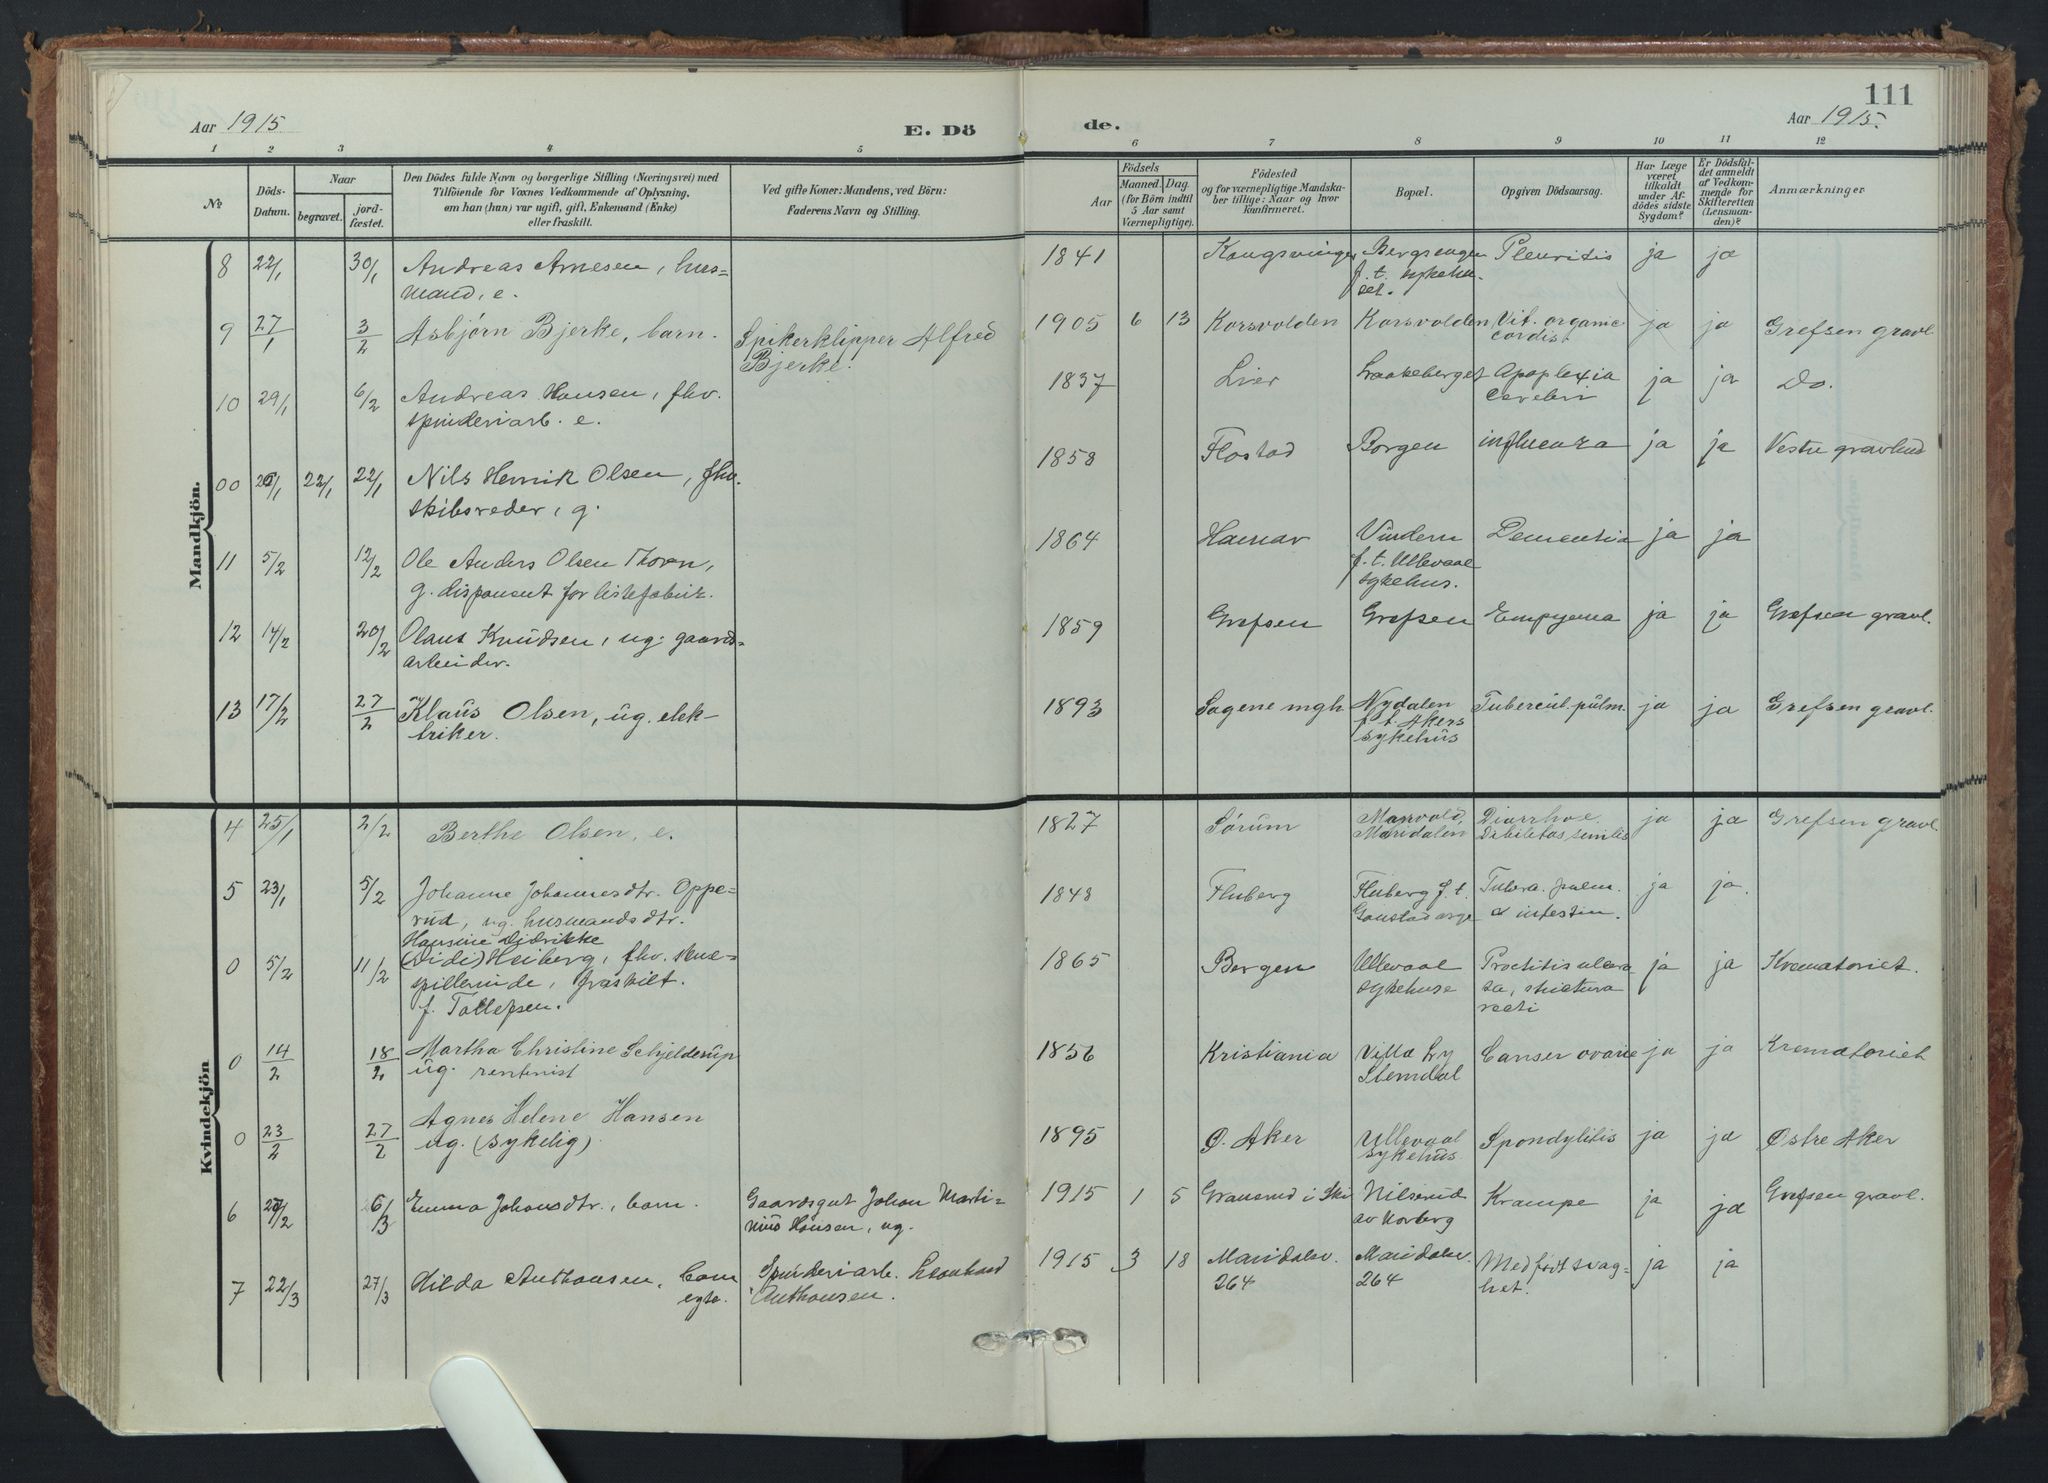 111
Aar 1915
E. Dö
de.
Aar 1915.
1 2 3 4 5 6 7 8 9 10 11 12
№
Döds-
Datum.
Naar
begravet.
jord-
fæstet.
Den Dödes fulde Navn og borgerlige Stilling (Næringsvei) med
Tilföiende for Voxnes Vedkommende af Oplysning,
om han (hun) var ugift, gift, Enkemand (Enke)
eller fraskilt.
Ved gifte Koner: Mandens, ved Börn:
Faderens Navn og Stilling.
Aar
Födsels
Maaned. Dag
(for Börn indtil
5 Aar samt
Værnepligtige).
Födested
og for værnepligtige Mandska-
ber tillige: Naar og hvor
Konfirmeret.
Bopæl.
Opgiven Dödsaarsag.
Har Læge
været
tilkaldt
under Af-
dödes sidste
Sygdom?
Er Dödsfal-
det anmeldt
af Vedkom-
mende for
Skifteretten
(Lensman-
den)?
Anmærkninger
Mandkjön.
8 22/1 30/1 Andreas Arnesen, hus- 1841 Kongsvinger Bergsengen Pleuritis ja ja
mand, e. f.t. sykehu-
set.
9 27/1 3/2 Asbjørn Bjerke, barn. Spikerklipper Alfred 1905 6 13 Korsvolden Korsvolden Vit. organic ja ja Grefsen gravl
Bjerke. cordist
10 29/1 6/2 Andreas Hansen, fhv. 1837 Lier Laakeberget Apoplexia ja ja Do.
spinderiarb. e. cerebri
00 22/1 22/1 Nils Henrik Olsen, fhv. 1858 Flostad Borgen influenza ja ja Vestre gravlund
skibsreder, g.
11 5/2 12/2 Ole Anders Olsen Thorn, 1864 Hamar Vindern Dementia ja ja
g. disponent for listefabrik. f.t. Ullevaal
sykehus.
12 14/2 20/2 Olaus Knudsen, ug. gaards- 1859 Grefsen Grefsen Empyema ja ja Grefsen gravl.
arbeider.
13 17/2 27/2 Klaus Olsen, ug. elek- 1893 Sagene mgh Nydalen Tubercul. pulm. ja ja Grefsen gravl.
triker. f.t. Akers
sykehus
Kvindekjön
4 25/1 2/2 Berthe Olsen, e. 1827 Sørum Diarrhoe. ja ja Grefsen gravl.
Maridalen Dibiletas senilis
5 23/1 5/2 Johanne Johannesdtr. Oppe- 1848 Fluberg Fluberg f.t. Tuberc. pulm. ja ja.
rud, ug. husmandsdtr. Gaustad asyl & intestin.
Hansine Didrikke
0 5/2 11/2 (Didi) Heiberg, fhv. skue- 1865 Bergen Ullevaal Proctitis ulcero ja ja Krematoriet.
spillerinde, fraskilt. sykehuse sa, strictura
f. Tollefsen. recti
0 14/2 18/2 Martha Christine Schjelderup 1856 Kristiania Villa Ly Canser ovarie ja ja Krematoriet
ug. rentenist Slemdal
0 23/2 27/2 Agnes Helene Hansen 1895 Ø. Aker Ullevaal Spondylitis ja ja Østre Aker
ug. (sykelig) sykehus
6 6/3 Emma Johansdtr., barn. Gaardsgut Johan Marti- 1915 1 5 Grauerud i Ski Nilserud Krampe ja ja Grefsen gravl.
nius Hansen, ug. av Korberg
7 22/3 27/3 Hilda Anthonsen, barn Spinderiarb. Leonhard 1915 3 18 Maridalsv. Maridalsv. Medfødt svag- ja ja
egte. Anthonsen. 264 264 het.